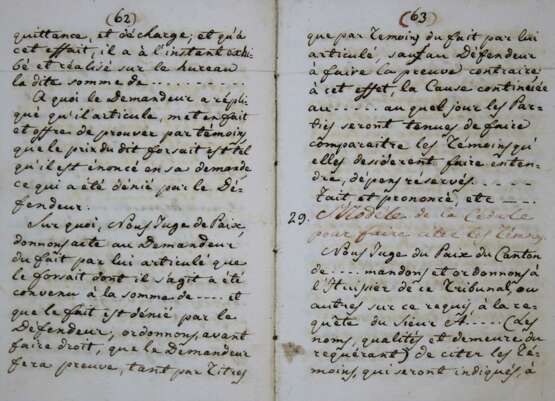 (62)
quittance, et décharge; et qu'à
cet effait, il a à l'instant exhi-
bé et réalisé sur le bureau
la dite somme de ..........
A quoi le Demandeur a répli-
qué qu'il articule, met en fait
et offre de prouver par témoins
que le prix du dit forfait est tel
qu'il est énoncé en sa demande
ce qui a été dénié par le Dé-
fendeur.
Sur quoi, Nous Juge de Paix,
donnons acte au Demandeur
du fait par lui articulé que
le forfait dont il s'agit a été
convenu à la somme de ..... et
que le fait est dénié par le
Défendeur, ordonnons, avant
faire droit, que le Demandeur
fera preuve, tant par Titres
(63)
que par Temoins du fait par lui
articulé sauf au Défendeur
à faire la preuve contraire
à cet effet, la Cause continuée
au ..... auquel jour les Par-
ties seront tenues de faire
comparaitre les Témoins qu'
elles desideront faire enten-
dre, dépens réservés.
Fait et prononcé, etc ....
29. Modèle de la Cedule
pour faire citer les Témoins
Nous Juge du Paix du Canton
de .... mandons et ordonnons à
l'Huissier de ce Tribunal ou
autres sur ce requis, à la re-
quête du Sieur A..... (Les
noms, qualités et demeure du
requérant) de citer les Té-
moins, qui seront indiqués, à